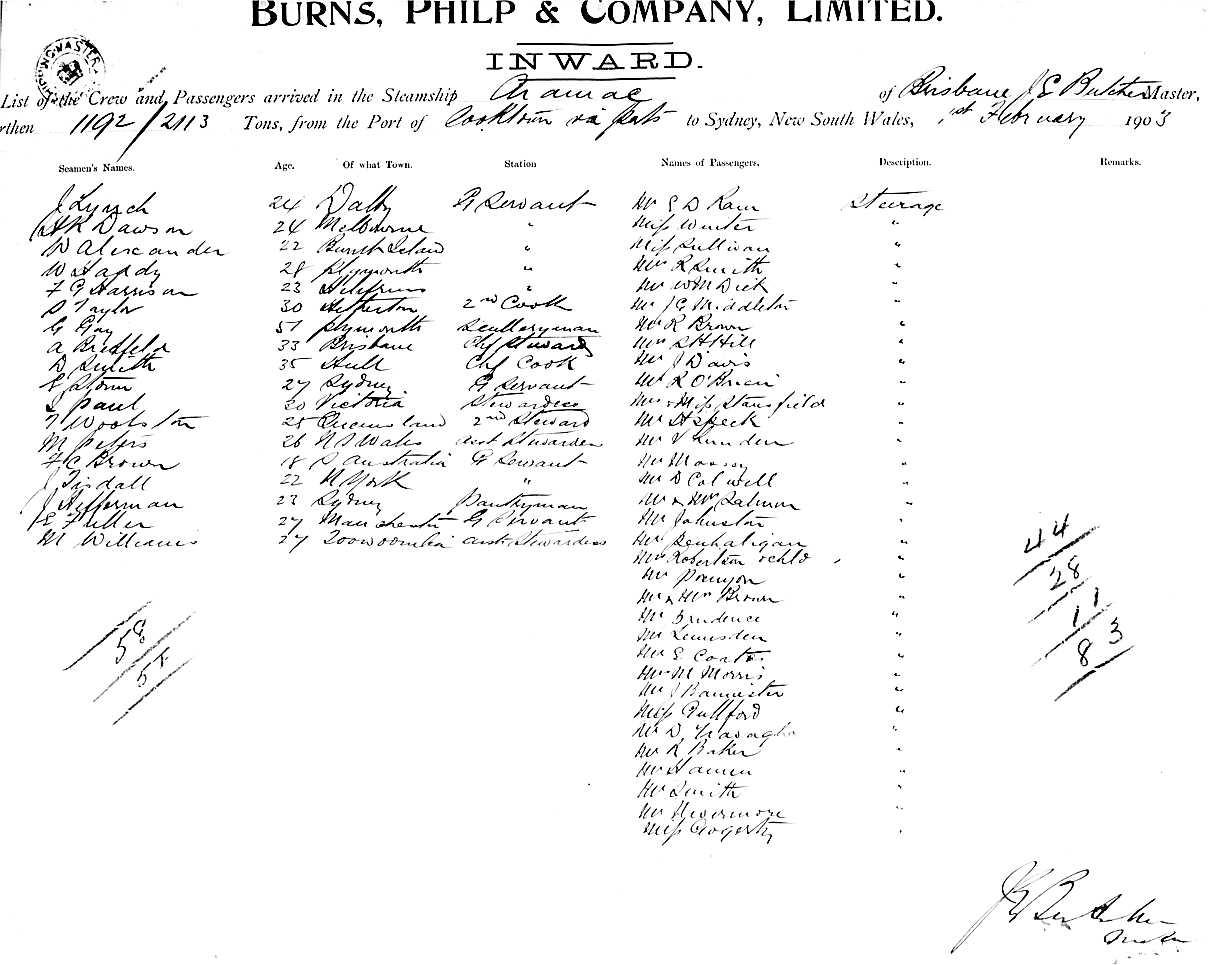 BURNS, PHILP & COMPANY, LIMITED.
INWARD.
List of the Crew and Passengers arrived in the Steamship Aramac of Brisbane J E Butcher Master,
Burthen 1192/2113 Tons, from the Port of Cooktown via ports to Sydney, New South Wales, 1st February 1903
Seamen's Names. Age. Of what Town. Station Names of Passengers. Description. Remarks.
J Lynch 24 Dalby G Servant Mr E D Ram Steerage
H K Dawson 24 Melbourne " Miss Winter "
W Alexander 22 " Miss Sullivan "
W Hardy 28 Plymouth " Mrs R Smith "
F G Harrison 23 " Mr W M Dick "
D Taylor 30 2nd Cook Mr J G Middleton "
G Gay 51 Plymouth Sculleryman Mr R Brown "
A Bredfeld 33 Brisbane Chf Steward Mrs S H Hill "
D Smith 35 Hull Chf Cook Mr J Davis "
E Storm 27 Sydney G Servant Mr R O'Brien "
S Paul 20 Victoria Stewardess Mrs & Miss Stansfield "
T Woolston 25 Queensland 2nd Steward Mr H Speck "
M Peters 26 N S Wales asst Stewardess Mr V Lunden "
F C Brown 18 S Australia G Servant Mr Massey "
J Tisdall 22 N York " Mr D Colwell "
J Hefferman 23 Sydney Pantryman Mr & Mrs Salmon "
E Fuller 27 Manchester G Servant Mr Johnston "
M Williams 27 Toowoomba asst Stewardess Mr Penhaligan "
Mrs Robertson & chld "
Mr Punyon "
Mr & Mrs Brown "
Mr Prudence "
Mr Lumsden "
Mr E Coats "
Mr M Morris "
Mr J Bannister "
Miss Gullford "
Mr D "
Mr R Baker "
Mr Hamm "
Mr Smith "
Mr Nivermore "
Miss Gogerty "
44
28
11
83
58
58
J E Butcher
Master